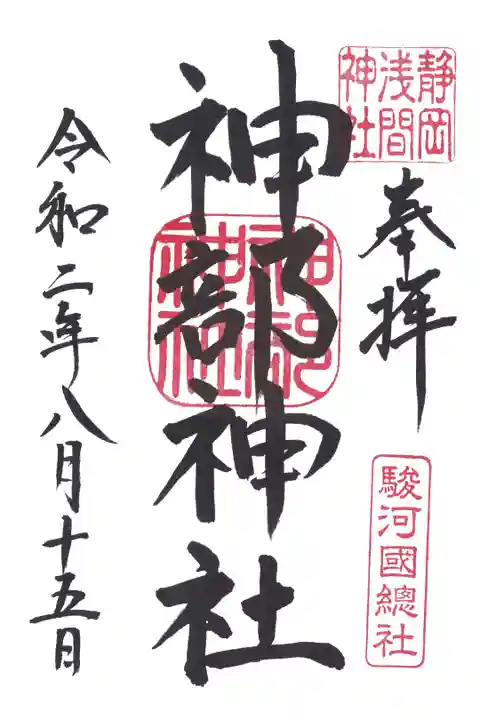 静岡
浅間
神社
奉拝
駿河國總社
神部神社
神部
神社
令和二年八月十五日